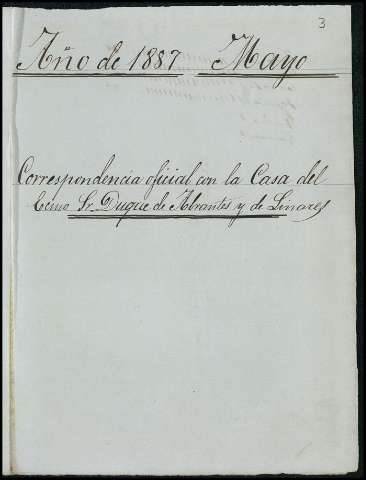 3
Año de 1887 Mayo
Correspondencia oficial con la Casa del
Excmo Sr. Duque de Abrantes y de Linares